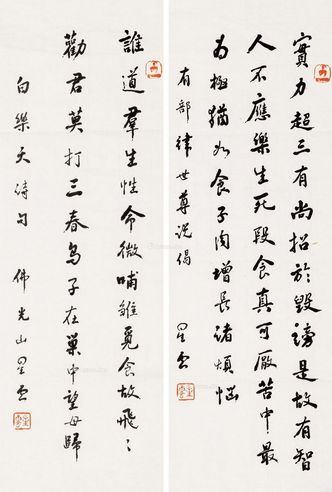 實力超三有尚招於毀謗是故有智
人不應樂生死段食真可厭苦中最
為極猶如食子肉增長諸煩惱
有部律世尊說偈
星雲
誰道羣生性命微哺雛覓食故飛飛
勸君莫打三春鳥子在巢中望母歸
白樂天詩句 佛光山星雲